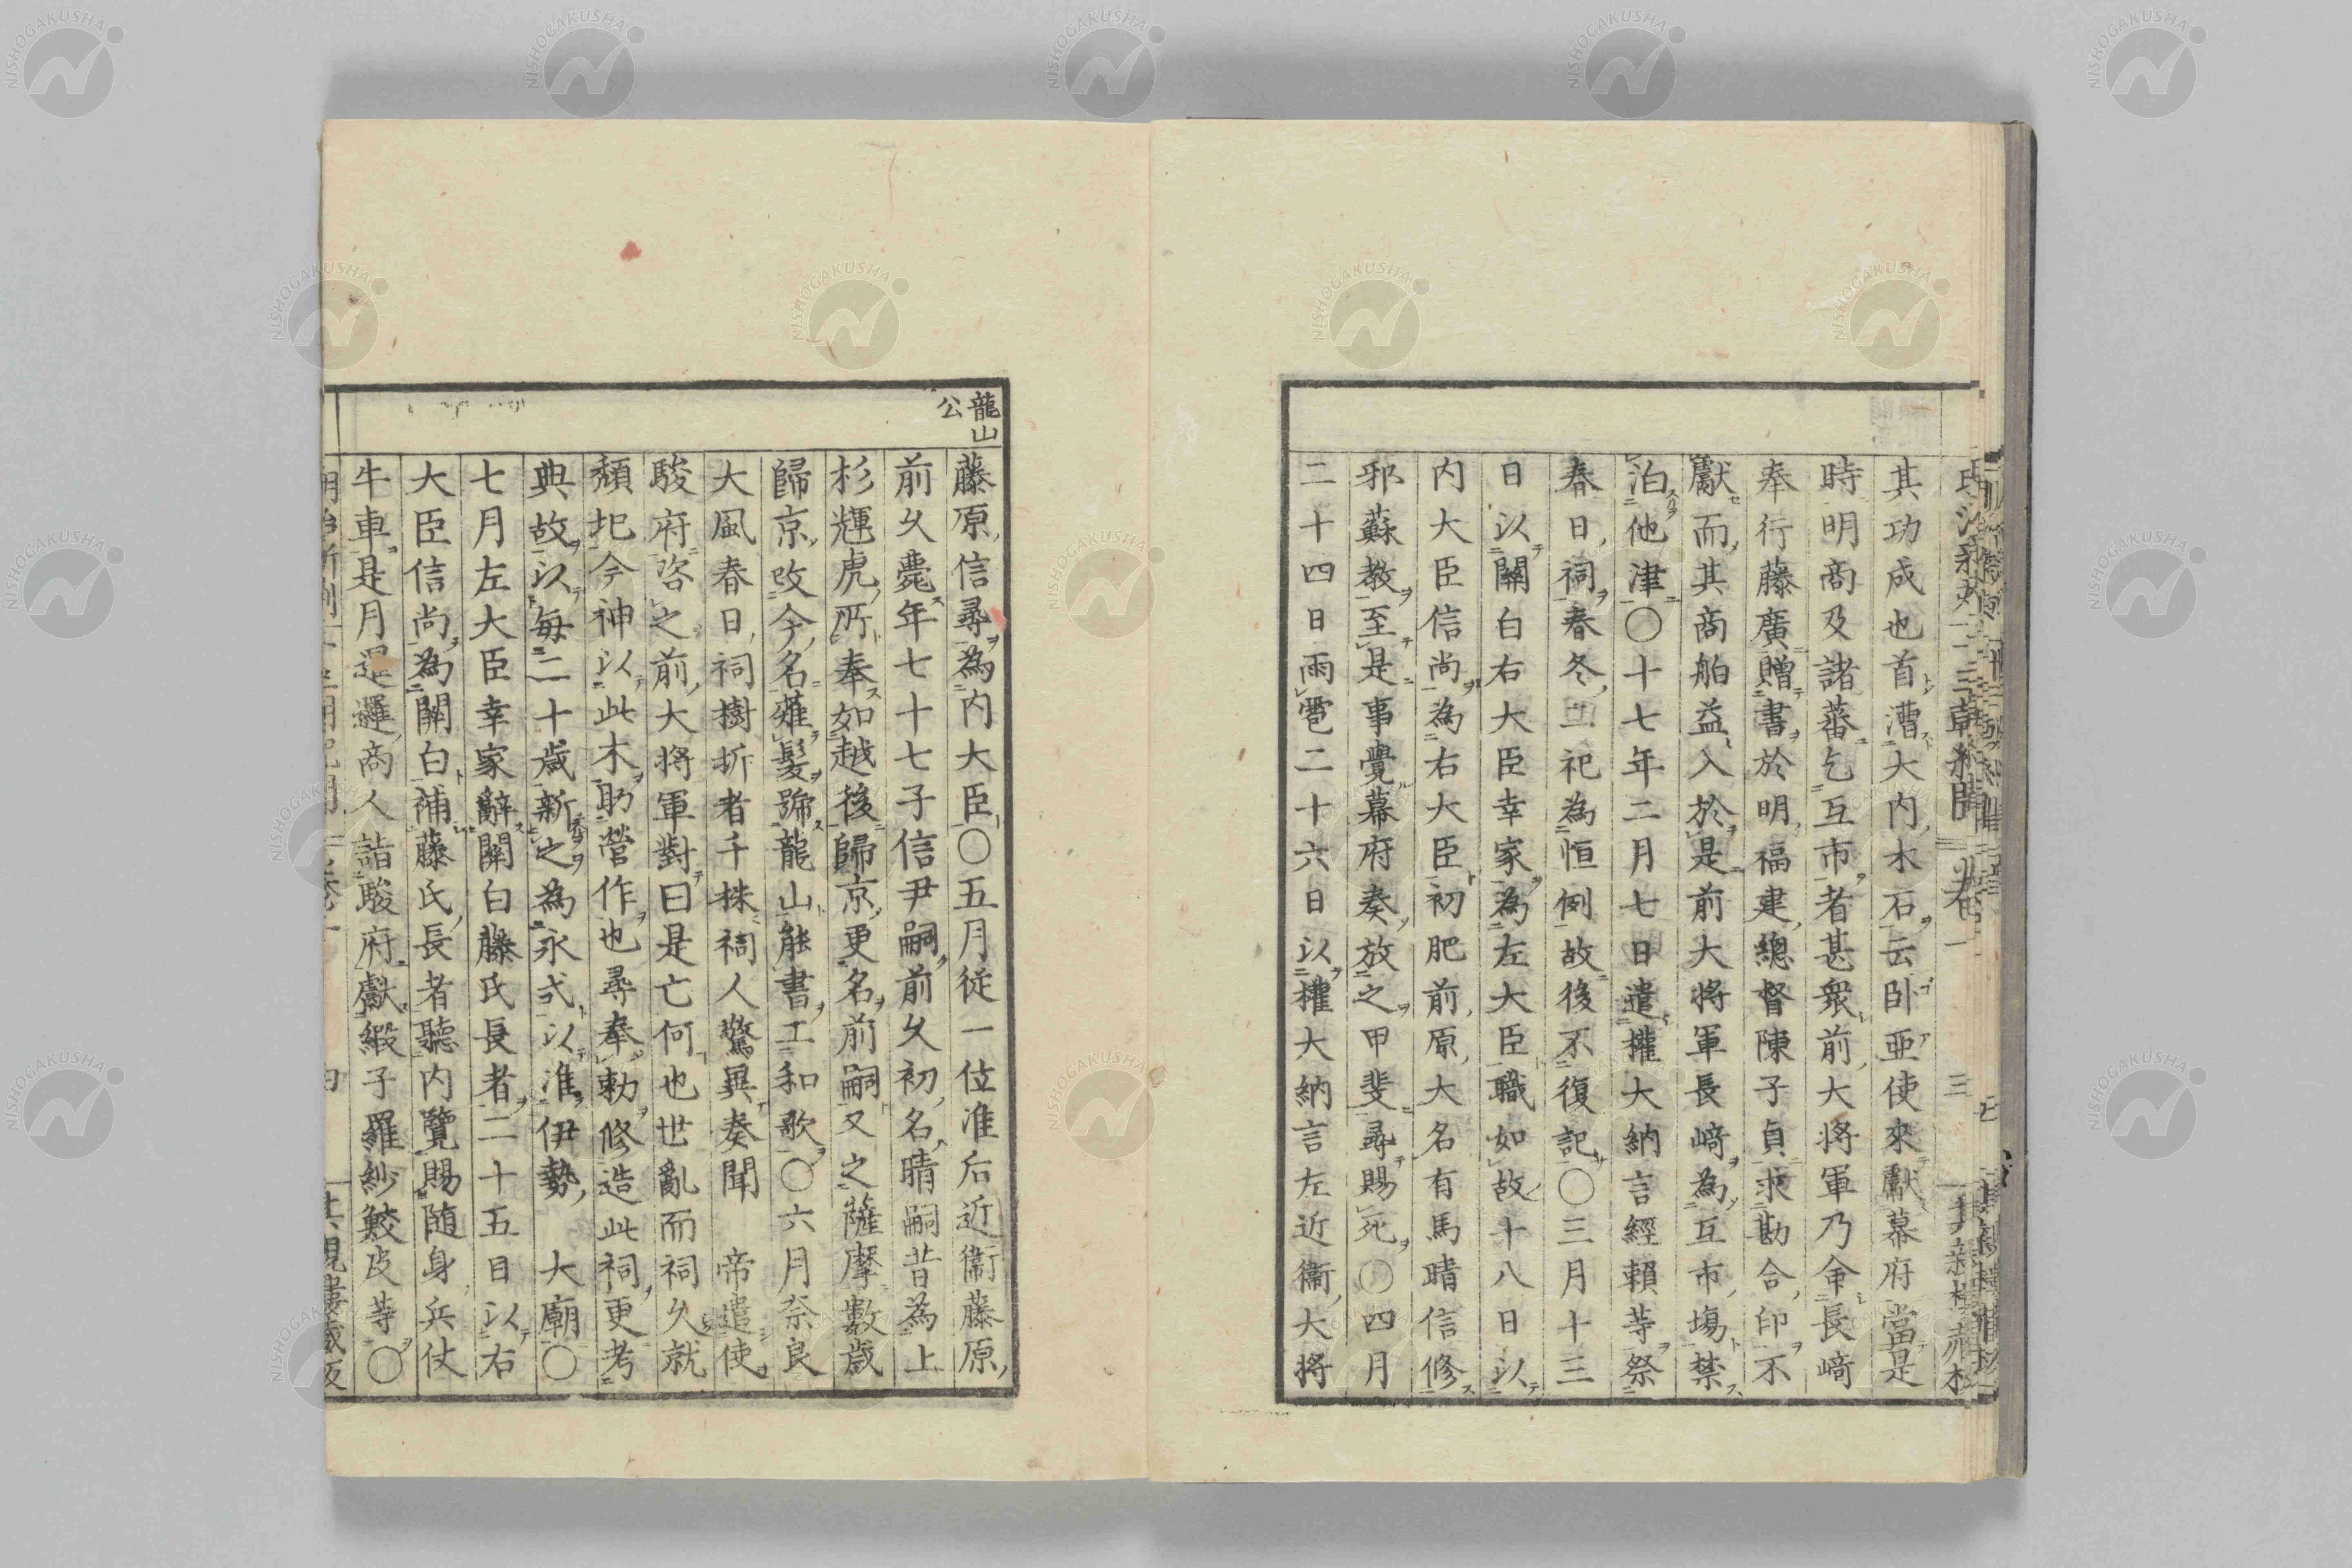 其功成也首漕大内木石云卧亜使來獻幕府當是
時明商及諸蕃乞互市者甚衆前大将軍乃命長﨑
奉行藤廣贈書於明福建總督陳子貞求勘合印不
獻而其商舶益入於是前大将軍長﨑為互市塲禁
泊他津〇十七年二月七日遣權大納言經頼等祭
春日祠春冬二祀為恒例故後不復記〇三月十三
日以關白右大臣幸家為左大臣職如故十八日以
内大臣信尚為右大臣初肥前原大名有馬晴信修
邪蘇教至是事覺幕府奏放之甲斐尋賜死〇四月
二十四日雨雹二十六日以權大納言左近衞大将
龍山公
藤原信尋為内大臣〇五月従一位准后近衞藤原
前久薨年七十七子信尹嗣前久初名晴嗣昔為上
杉輝虎所奉如越後歸京更名前嗣又之薩摩數歳
歸京改今名薙髮號龍山能書工和歌〇六月奈良
大風春日祠樹折者千株祠人驚異奏聞　帝遣使
駿府咨之前大将軍對曰是亡何也世亂而祠久就
頽圮今神以此木助營作也尋奉勅修造此祠更考
典故以毎二十歳新之為永式以准伊勢　大廟〇
七月左大臣幸家辭關白藤氏長者二十五日以右
大臣信尚為關白補藤氏長者聽内覽賜随身兵仗
牛車是月暹邏商人詣駿府獻緞子羅紗鮫皮等〇